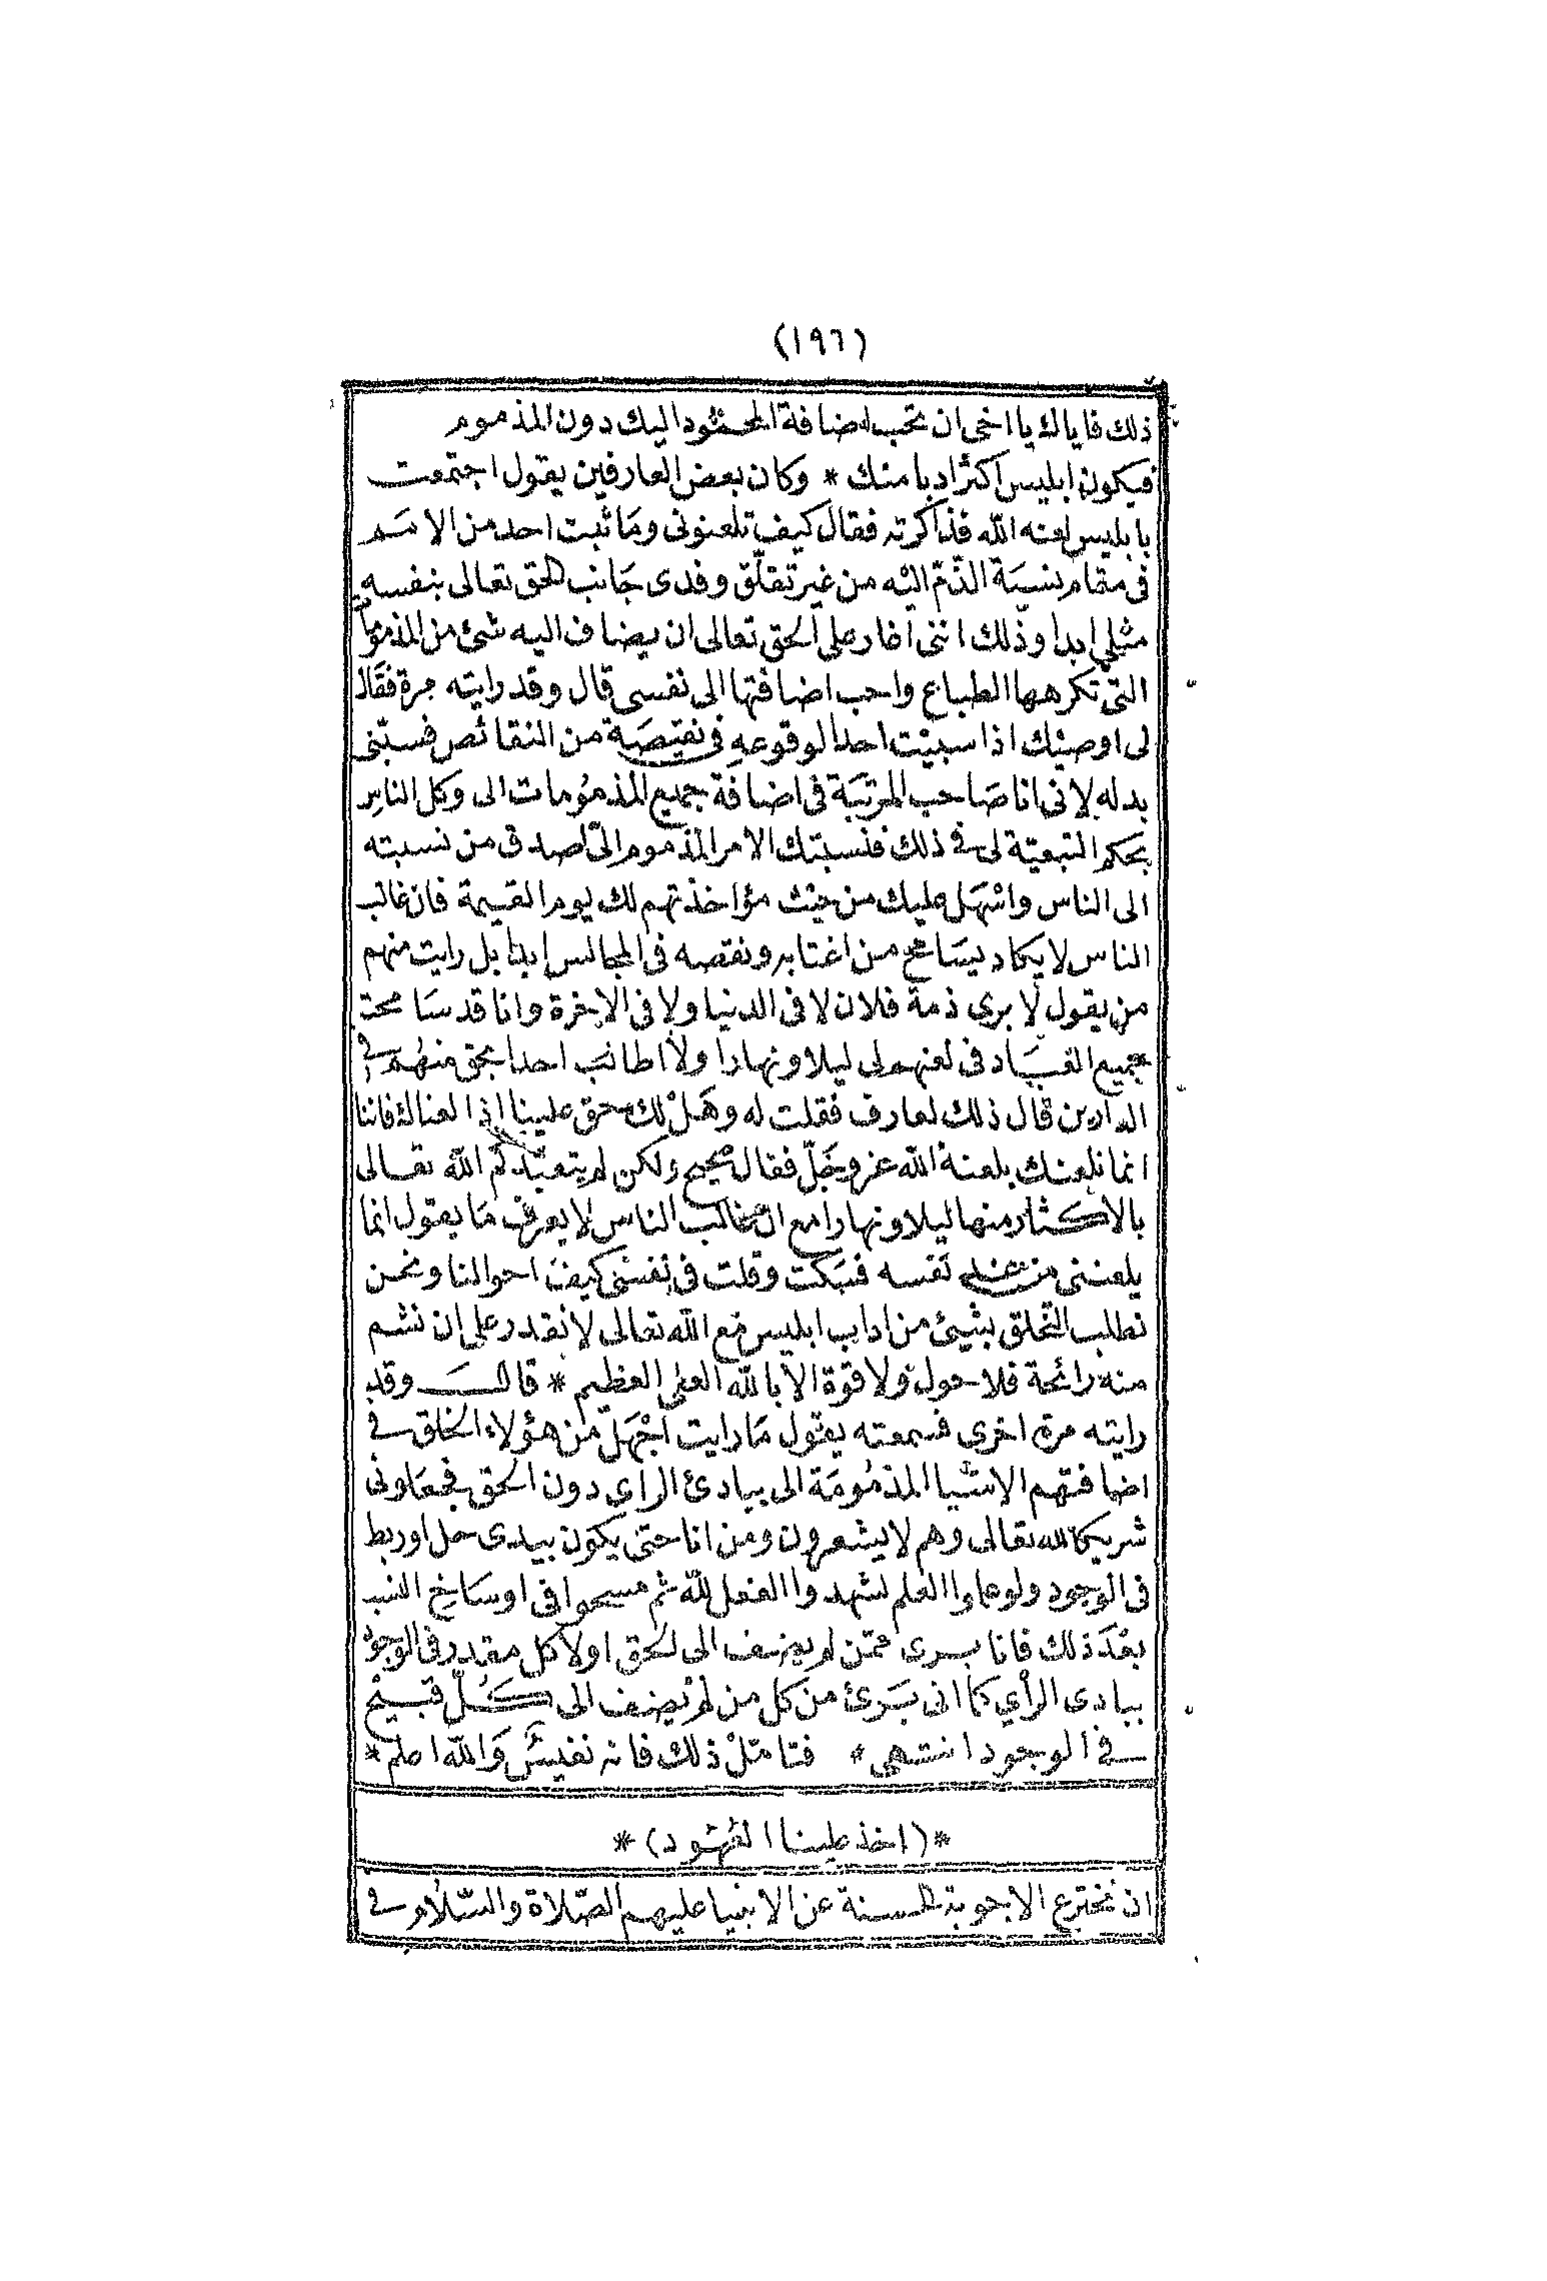 (١٩٦)
ذلك فاياك يا اخى ان تحب اضافة المحمود اليك دون المذموم
فيكون ابليس اكثر ادبا منك * وكان بعض العارفين يقول اجتمعت
بابليس لعنه الله فذاكرته فقال كيف تلعنونى وما ثبت احد من الامم
فى مقام نسبة الذّم اليه من غير تقلّق وفدى جانب الحق تعالى بنفسه
مثلى ابدا وذلك اننى اغار على الحق تعالى ان يضاف اليه شئ من المذموما
التى تكرهها الطباع واحب اضافتها الى نفسى قال وقد رايته مرة فقال
لى اوصيك اذا سببت احدا لوقوعه فى نقيصة من النقائص فسبّنى
بدله لانى انا صاحب المرتبة فى اضافة جميع المذمومات الى وكل الناس
بحكم التبعيّة لى فى ذلك فنسبتك الامر المذموم الىّ اصدق من نسبته
الى الناس واسهل عليك من حيث مؤاخذتهم لك يوم القيمة فان غالب
الناس لا يكاد يسامح من اغتابه ونقصه فى المجالس ابدا بل رايت منهم
من يقول لا برى ذمة فلان لا فى الدنيا ولا فى الاخرة وانا قد سامحت
جميع العباد فى لعنهم لى ليلا ونهارا ولا اطالب احدا بحق منهم فى
الدارين قال ذلك العارف فقلت له وهل لك حق علينا اذا لعناك فاننا
انما نلعنك بلعنة الله عز وجلّ فقال صحيح ولكن لم يتعبّدكم الله تعالى
بالاكثار منها ليلا ونهارا مع ان غالب الناس لا يعرف ما يقول انما
يلعننى من عند نفسه فسكت وقلت فى نفسى كيف احوالنا ونحن
نطلب التخلق بشيئ من اداب ابليس مع الله تعالى لا نقدر على ان نشم
منه رائحة فلا حول ولا قوة الا بالله العلى العظيم * قال وقد
رايته مرة اخرى فسمعته يقول ما رايت اجهل من هؤلاء الخلق فى
اضافتهم الاشيا المذمومة الى ببادئ الراي دون الحق فجعلونى
شريكا لله تعالى وهم لا يشعرون ومن انا حتى يكون بيدى حل او ربط
فى الوجود ولو علموا العلم لشهدوا الفعل لله ثم مسحوا فى اوساخ النسب
بعد ذلك فانا برى ممن لم يضف الى الحق اولا كل مقدر فى الوجود
ببادى الرأي كما انى برئ من كل من لم يضف الى كلّ قبيح
فى الوجود انتهى * فتامّل ذلك فانه نفيس والله اعلم *
* (اخذ علينا العهود) *
ان نخترع الاجوبة الحسنة عن الانبيا عليهم الصّلاة والسّلام فى